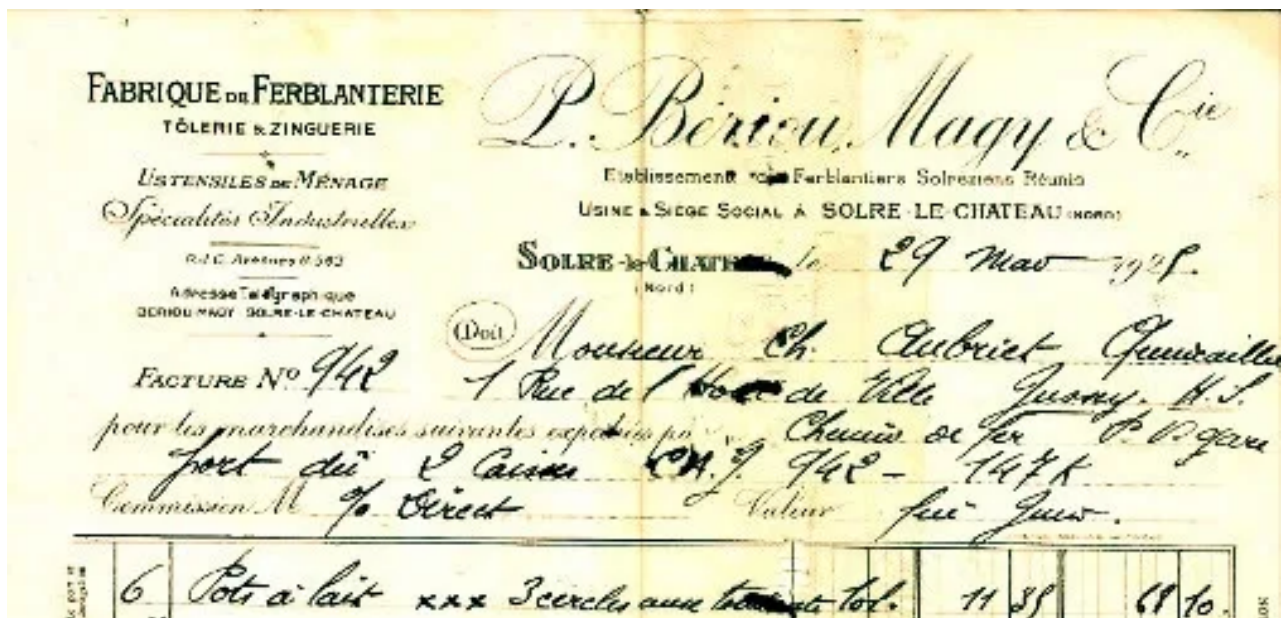 FABRIQUE DE FERBLANTERIE
TÔLERIE & ZINGUERIE
USTENSILES DE MÉNAGE
Spécialités Industrielles
Adresse Télégraphique
BERIOU-MAGY SOLRE-LE-CHATEAU
FACTURE Nº 942
P. Bériou, Magy & Cie
Etablissement Ferblantiers Solréziens Réunis
USINE & SIÈGE SOCIAL À SOLRE-LE-CHATEAU (NORD)
SOLRE-le-CHATEAU, le 29 Mai 192
(Nord)
Doit Monsieur Ch. Aubriet
1 Rue de l' de Ville Jussey. H.S.
pour les marchandises suivantes expédiées Chemin de fer P.V. gare
port dû 2 Caisses 942 - 147 K
Commission M % Direct Valeur fin Juin.
6 Pots à lait xxx 3 cercles 11 35 68 10.